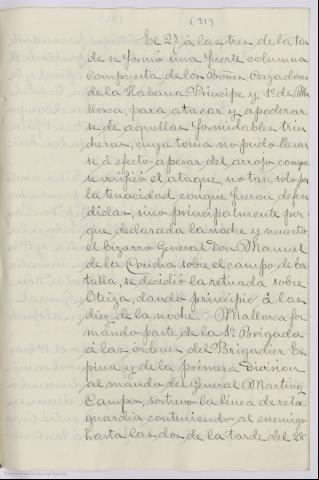 (31)
El 27, á las tres de la tar
de se formó una fuerte columna
compuesta de los Bones. Cazadores
de la Habana Principe y 1º de Ma
llorca, para atacar y apoderar
se de aquellas formidables trin
cheras, cuya toma no pudo llevar
se á efecto apesar del arrojo conque
se verificó el ataque, no tan solo por
la tenacidad conque fueron defen
didas, sino principalmente por
que declarada la noche y muerto
el bizarro General Don Manuel
de la Concha sobre el campo de ba
talla, se decidió la retirada sobre
Oteiza, dando principio á las
diez de la noche. Mallorca for
mando parte de la 1ª Brigada
á las órdenes del Brigadier Es
pina y de la primera Division
al mando del General Martinez
Campos, sostuvo la linea de reta
guardia conteniendo al enemigo
hasta las dos de la tarde del 28